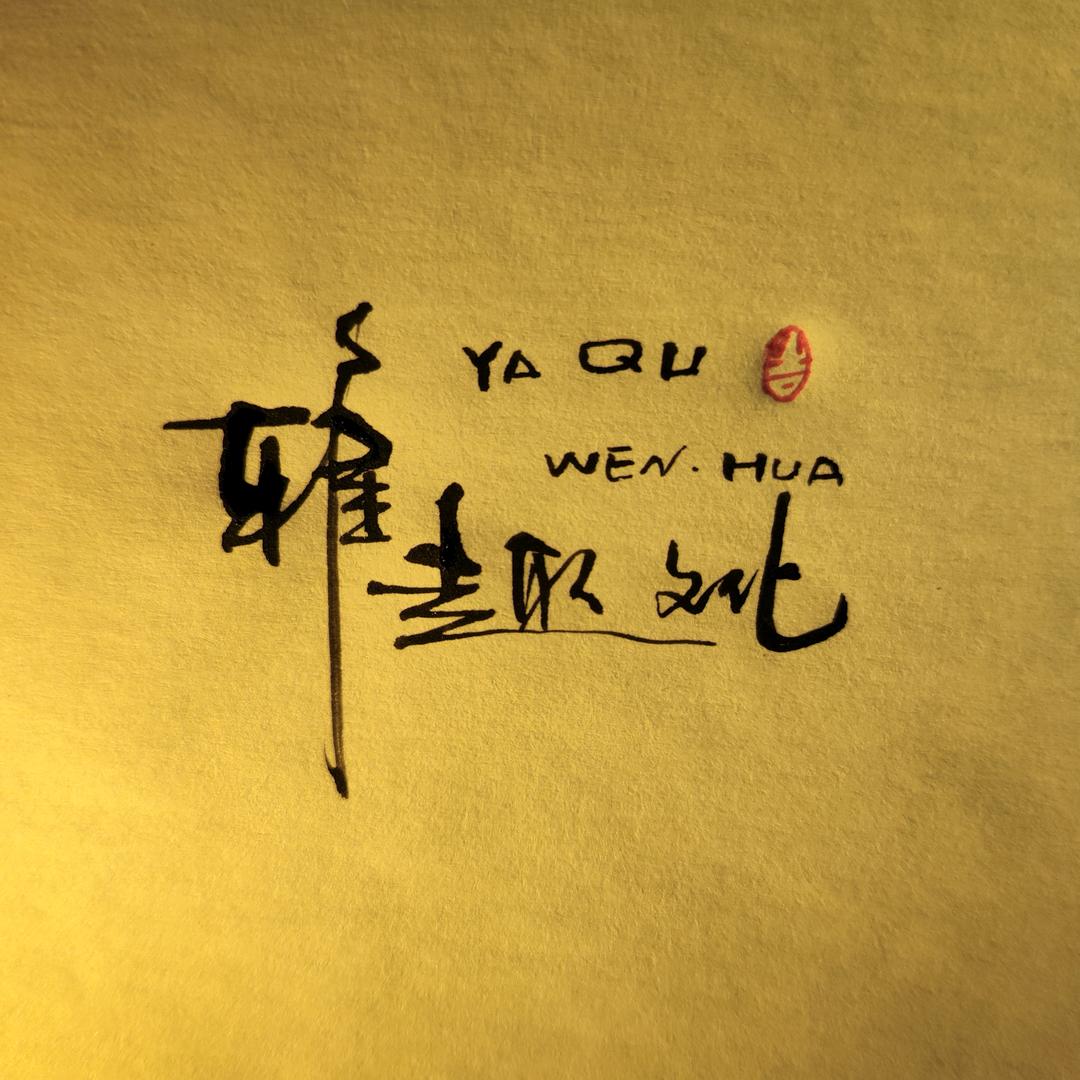 YA QU
WEN·HUA
雅趣文化